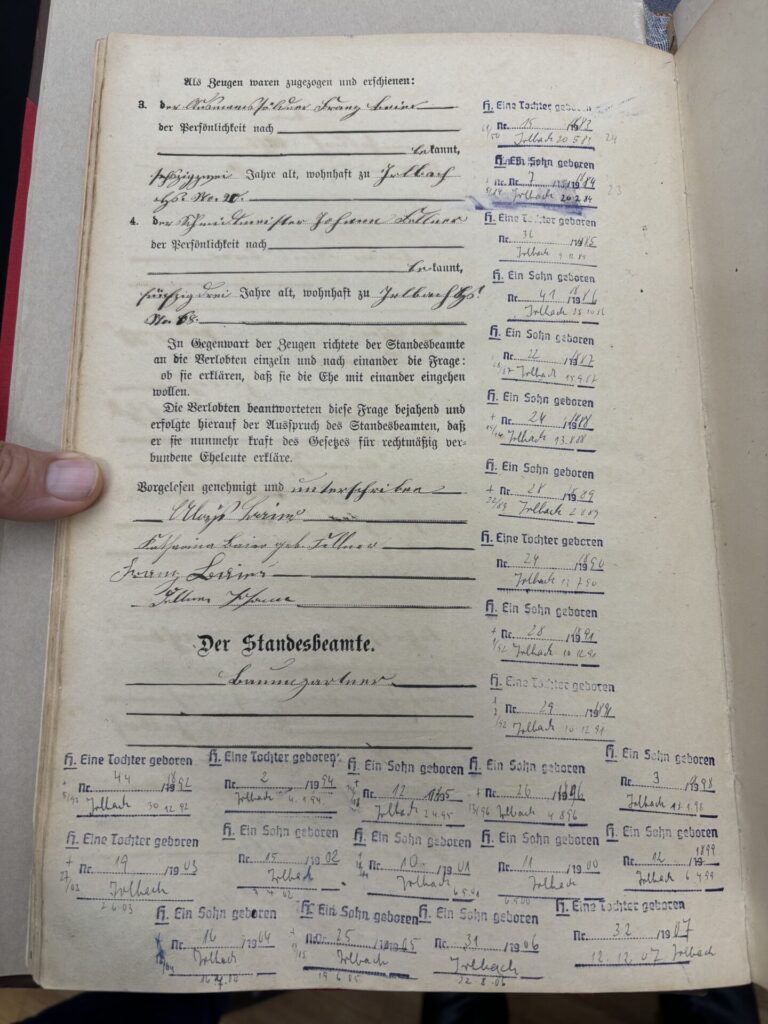 Als Zeugen waren zugezogen und erschienen:
3. der Franz Baier
der Persönlichkeit nach
bekannt,
sechzigzwei Jahre alt, wohnhaft zu Irlbach
Hs. No.
4. der Schmiedmeister Johann Fellner
der Persönlichkeit nach
bekannt,
fünfzigdrei Jahre alt, wohnhaft zu Irlbach Hs.
No. 68.
In Gegenwart der Zeugen richtete der Standesbeamte
an die Verlobten einzeln und nach einander die Frage:
ob sie erklären, daß sie die Ehe mit einander eingehen
wollen.
Die Verlobten beantworteten diese Frage bejahend und
erfolgte hierauf der Ausspruch des Standesbeamten, daß
er sie nunmehr kraft des Gesetzes für rechtmäßig ver-
bundene Eheleute erkläre.
Vorgelesen genehmigt und unterschrieben
Aloys Baier
Katharina Baier geb. Fellner
Franz Baier
Fellner Johann
Der Standesbeamte.
Baumgartner
H. Eine Tochter geboren
Nr. 15 /1883
Irlbach 20 5 83
24
H. Ein Sohn geboren
Nr. 7 /1884
Irlbach 20.2.84
23
H. Eine Tochter geboren
Nr. 36 /1885
Irlbach
H. Ein Sohn geboren
Nr. 41 /1886
Irlbach 25 10 86
H. Ein Sohn geboren
Nr. 22 /1887
Irlbach 15 9 87
H. Ein Sohn geboren
+ Nr. 24 /1888
Irlbach 13.8 88
H. Ein Sohn geboren
+ Nr. 28 /1889
Irlbach
H. Eine Tochter geboren
Nr. 24 /1890
Irlbach 7 90
H. Ein Sohn geboren
+ Nr. 28 /1891
Irlbach 10 12 91
H. Eine Tochter geboren
Nr. 29 /1891
Irlbach 10.12.91
H. Eine Tochter geboren
Nr. 44 1892
Irlbach 30 12 92
H. Eine Tochter geboren
Nr. 2 /1894
Irlbach 4.1.94
H. Ein Sohn geboren
Nr. 12 1895
Irlbach 2.4.95
H. Ein Sohn geboren
Nr. 26 /1896
Irlbach 4 8 96
H. Ein Sohn geboren
Nr. 3 /1898
Irlbach
H. Eine Tochter geboren
+ Nr. 19 /1903
Irlbach
2.6.03
H. Ein Sohn geboren
Nr. 15 /1902
Irlbach
H. Ein Sohn geboren
Nr. 10. /1901
Irlbach
H. Ein Sohn geboren
Nr. 11 /1900
Irlbach
H. Ein Sohn geboren
Nr. 12 1899
Irlbach 6 4 99
H. Ein Sohn geboren
Nr. 16 /1904
Irlbach
H. Ein Sohn geboren
Nr. 25 /1905
Irlbach
19.6.05
H. Ein Sohn geboren
Nr. 31 /1906
Irlbach
22 8 06
H. Eine Tochter geboren
Nr. 32 /1907
12.12.07 Irlbach